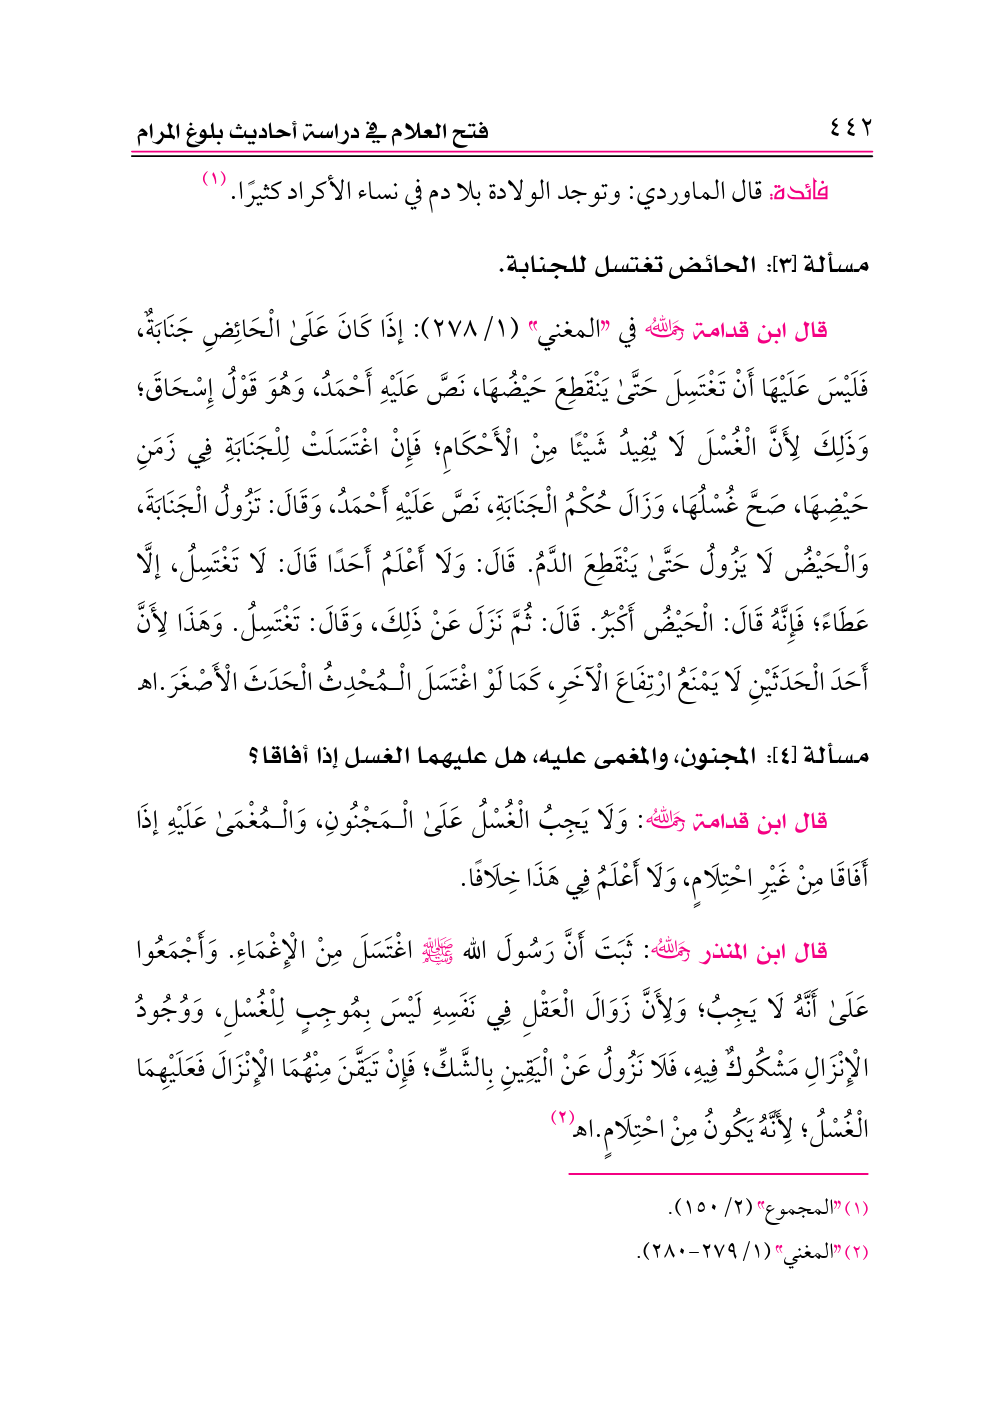 ٤٤٢ فتح العلام في دراسة أحاديث بلوغ المرام
فائدة: قال الماوردي: وتوجد الولادة بلا دم في نساء الأكراد كثيرًا. (١)
مسألة [٣]: الحائض تغتسل للجنابة.
قال ابن قدامة رحمه الله في "المغني" (١/ ٢٧٨): إذَا كَانَ عَلَىٰ الْحَائِضِ جَنَابَةٌ،
فَلَيْسَ عَلَيْهَا أَنْ تَغْتَسِلَ حَتَّىٰ يَنْقَطِعَ حَيْضُهَا، نَصَّ عَلَيْهِ أَحْمَدُ، وَهُوَ قَوْلُ إسْحَاقَ؛
وَذَلِكَ لِأَنَّ الْغُسْلَ لَا يُفِيدُ شَيْئًا مِنْ الْأَحْكَامِ؛ فَإِنْ اغْتَسَلَتْ لِلْجَنَابَةِ فِي زَمَنِ
حَيْضِهَا، صَحَّ غُسْلُهَا، وَزَالَ حُكْمُ الْجَنَابَةِ، نَصَّ عَلَيْهِ أَحْمَدُ، وَقَالَ: تَزُولُ الْجَنَابَةَ،
وَالْحَيْضُ لَا يَزُولُ حَتَّىٰ يَنْقَطِعَ الدَّمُ. قَالَ: وَلَا أَعْلَمُ أَحَدًا قَالَ: لَا تَغْتَسِلُ، إلَّا
عَطَاءً؛ فَإِنَّهُ قَالَ: الْحَيْضُ أَكْبَرُ. قَالَ: ثُمَّ نَزَلَ عَنْ ذَلِكَ، وَقَالَ: تَغْتَسِلُ. وَهَذَا لِأَنَّ
أَحَدَ الْحَدَثَيْنِ لَا يَمْنَعُ ارْتِفَاعَ الْآخَرِ، كَمَا لَوْ اغْتَسَلَ الْـمُحْدِثُ الْحَدَثَ الْأَصْغَرَ.اﻫ
مسألة [٤]: المجنون، والمغمى عليه، هل عليهما الغسل إذا أفاقا؟
قال ابن قدامة رحمه الله: وَلَا يَجِبُ الْغُسْلُ عَلَىٰ الْـمَجْنُونِ، وَالْـمُغْمَىٰ عَلَيْهِ إذَا
أَفَاقَا مِنْ غَيْرِ احْتِلَامٍ، وَلَا أَعْلَمُ فِي هَذَا خِلَافًا.
قال ابن المنذر رحمه الله: ثَبَتَ أَنَّ رَسُولَ الله ﷺ اغْتَسَلَ مِنْ الْإِغْمَاءِ. وَأَجْمَعُوا
عَلَىٰ أَنَّهُ لَا يَجِبُ؛ وَلِأَنَّ زَوَالَ الْعَقْلِ فِي نَفَسِهِ لَيْسَ بِمُوجِبٍ لِلْغُسْلِ، وَوُجُودُ
الْإِنْزَالِ مَشْكُوكٌ فِيهِ، فَلَا نَزُولُ عَنْ الْيَقِينِ بِالشَّكِّ؛ فَإِنْ تَيَقَّنَ مِنْهُمَا الْإِنْزَالَ فَعَلَيْهِمَا
الْغُسْلُ؛ لِأَنَّهُ يَكُونُ مِنْ احْتِلَامٍ.اﻫ(٢)
(١) "المجموع" (٢/ ١٥٠).
(٢) "المغني" (١/ ٢٧٩-٢٨٠).